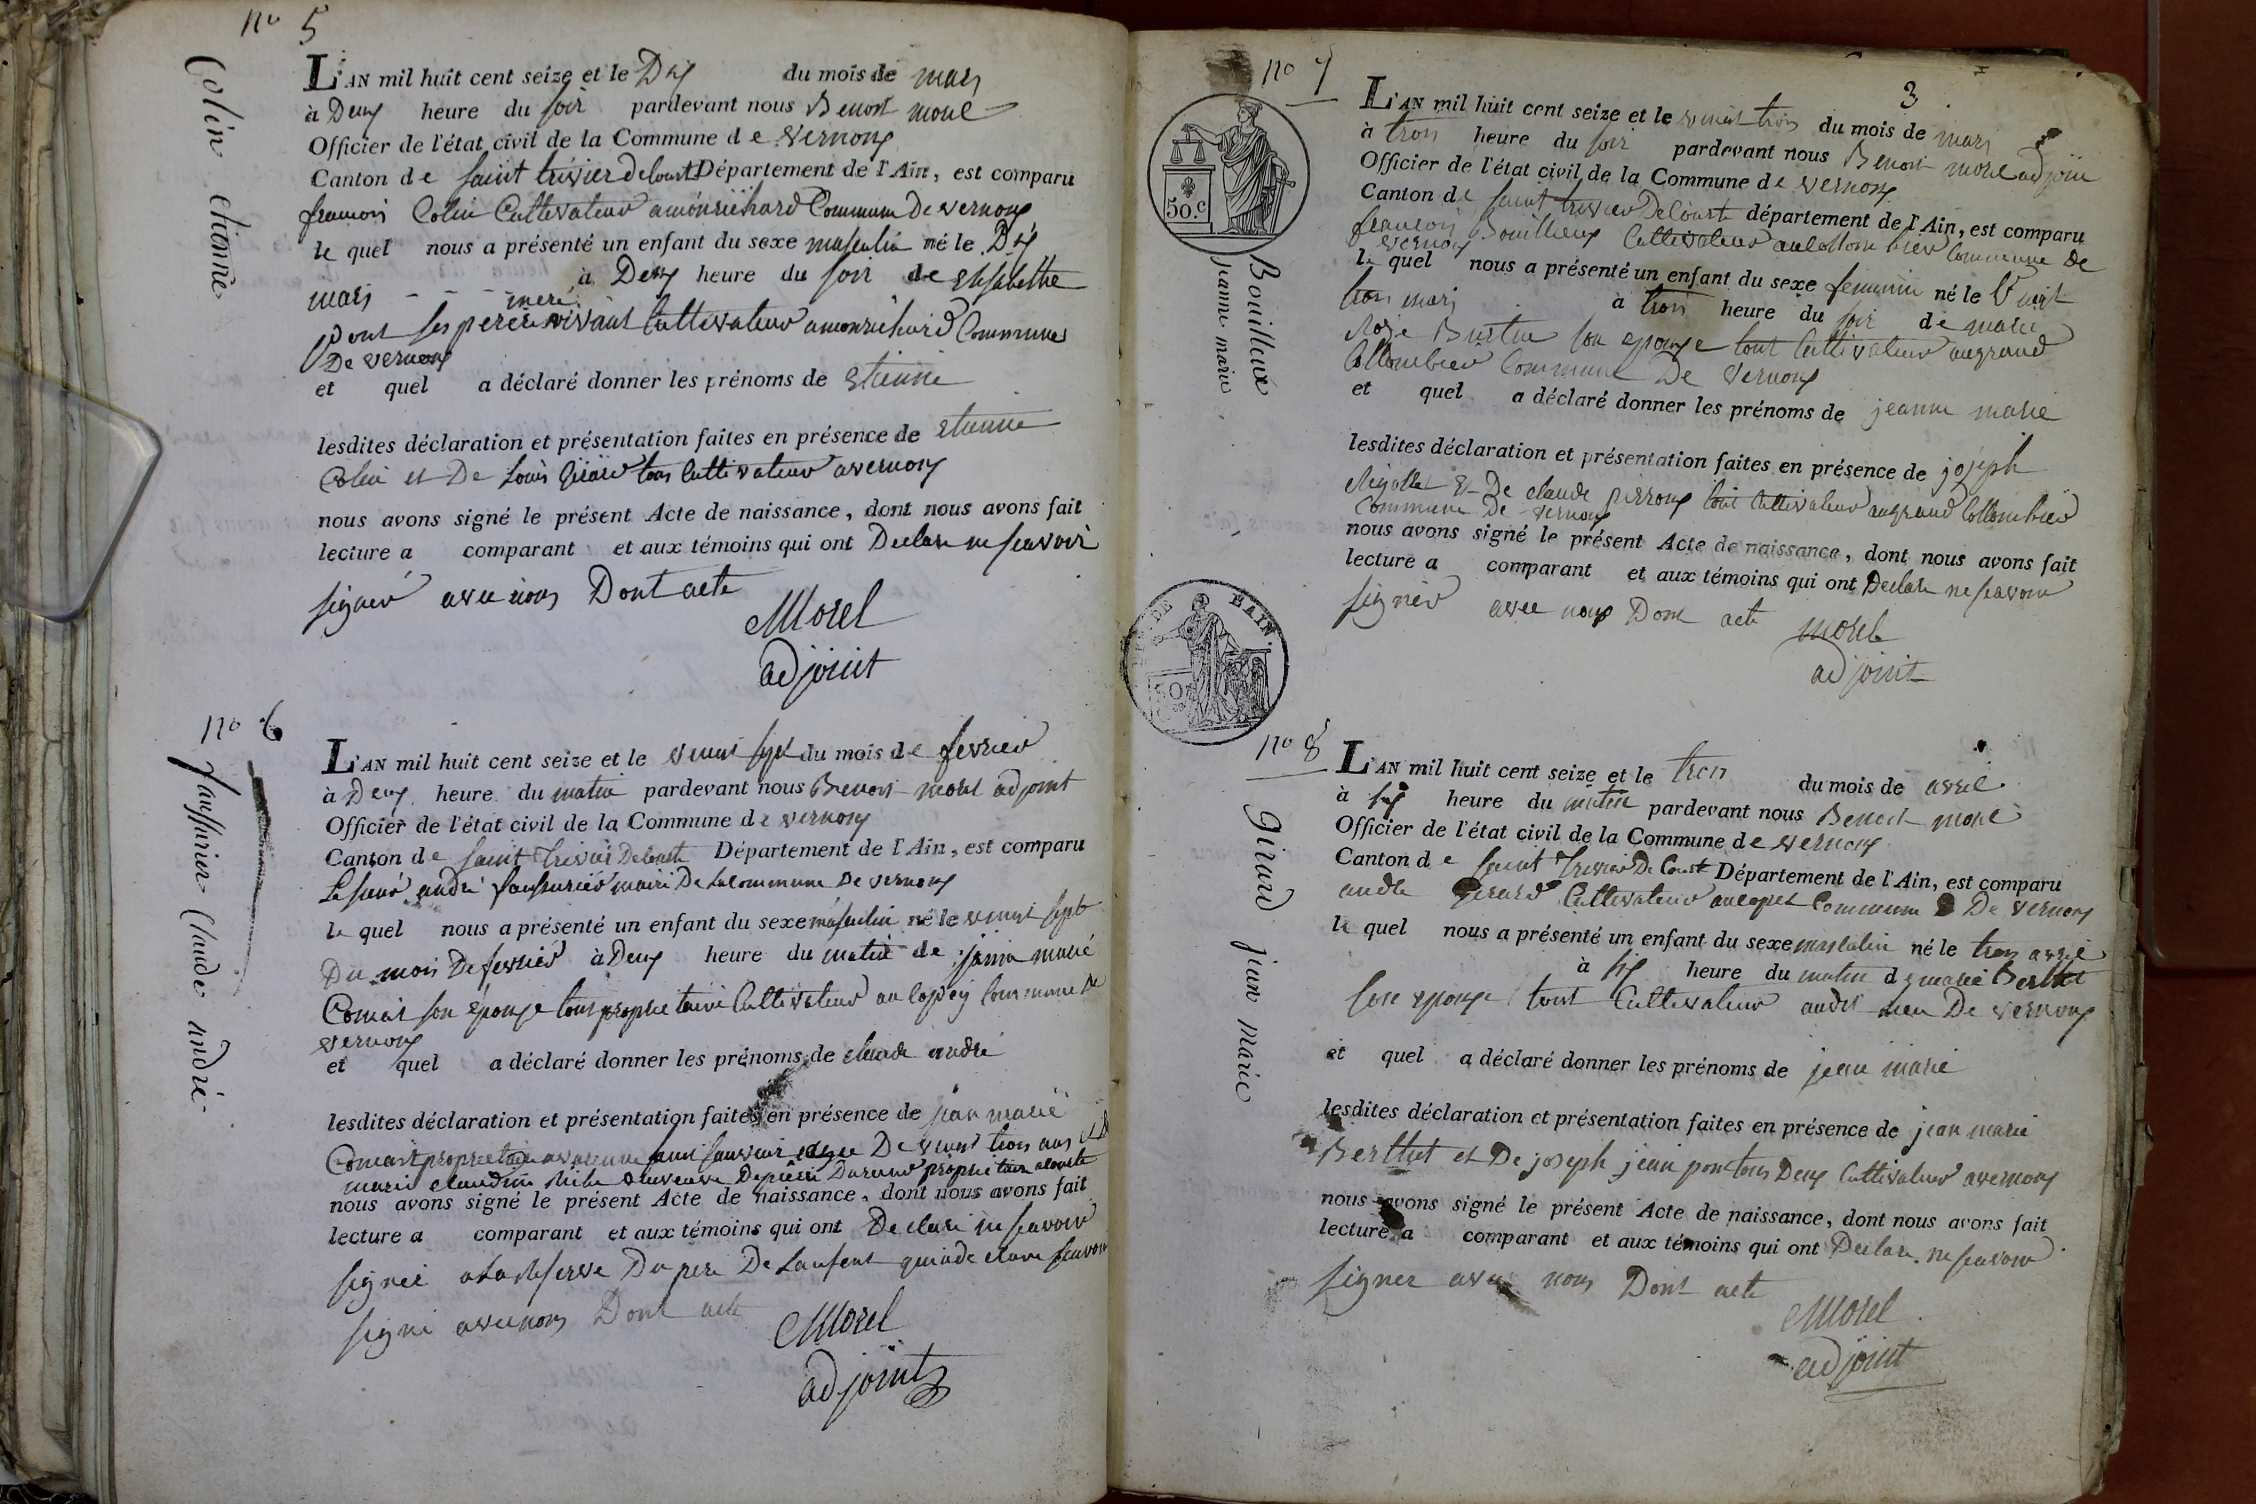 no 5
Colin etienne
L'AN mil huit cent seize et le Dix du mois de mars
à Deux heure du soir pardevant nous Benoit morel
Officier de l'état civil de la Commune de vernoux
Canton de saint trivier de Courte Département de l'Ain, est comparu
francois Colin Cultivateur a monrichard Commune De vernoux
le quel nous a présenté un enfant du sexe masculin né le Dix
mars à Deux heure du soir de elisabethe
mere
Dont ses pere vivant Cultivateur a monrichard Commune
De vernoux
et quel a déclaré donner les prénoms de etienne
lesdites déclaration et présentation faites en présence de etienne
Colin et De Louis tous Cultivateur a vernoux
nous avons signé le présent Acte de naissance, dont nous avons fait
lecture a comparant et aux témoins qui ont Declare ne scavoir
signer avec nous Dont acte
Morel
adjoint
no 6
Claude andré
L'AN mil huit cent seize et le vingt sept du mois de fevrier
à Deux heure du matin pardevant nous Benoit morel adjoint
Officier de l'état civil de la Commune de vernoux
Canton de saint Trivier De Courte Département de l'Ain, est comparu
Le sieur andré maire De la Commune De vernoux
le quel nous a présenté un enfant du sexe masculin né le vingt sept
Du mois De fevrier à Deux heure du matin de marie
Comas son epouse tous proprietaire Cultivateur au Commune de
vernoux
et quel a déclaré donner les prénoms de claude andré
lesdites déclaration et présentation faites en présence de jean marie
Comas proprietaire a varenne saint sauveur agee De vingt trois ans et de
marie claudine veuve De pierre proprietaire a Courte
nous avons signé le présent Acte de naissance, dont nous avons fait
lecture a comparant et aux témoins qui ont Declare ne scavoir
signer a la reserve Du pere De Lenfent qui a declare scavoir
signe avec nous Dont acte
Morel
adjoint
3
no 7
50.c
Bouilleux
jeanne marie
L'AN mil huit cent seize et le vingt trois du mois de mars
à trois heure du soir pardevant nous Benoit morel adjoin
Officier de l'état civil de la Commune de vernoux
Canton de saint trivier De Courte département de l'Ain, est comparu
francois Bouilleux Cultivateur au Collombier Commune De
vernoux
le quel nous a présenté un enfant du sexe feminin né le vingt
trois mars à trois heure du soir de marie
son epouse tout Cultivateur au grand
Collombier Commune De vernoux
et quel a déclaré donner les prénoms de jeanne marie
lesdites déclaration et présentation faites en présence de joseph
Rigollet & De claude tout Cultivateur au grand Collombier
Commune De vernoux
nous avons signé le présent Acte de naissance, dont nous avons fait
lecture a comparant et aux témoins qui ont Declare ne scavoir
signer avec nous Dont acte
morel
adjoint
no 8
girard jean marie
L'AN mil huit cent seize et le trois du mois de avril
à six heure du matin pardevant nous Benoit morel
Officier de l'état civil de la Commune de vernoux
Canton de saint Trivier De Courte Département de l'Ain, est comparu
andre girard Cultivateur Commune De vernoux
le quel nous a présenté un enfant du sexe masculin né le trois avril
à six heure du matin de marie Berthet
son epouse tout Cultivateur audit lieu De vernoux
et quel a déclaré donner les prénoms de jean marie
lesdites déclaration et présentation faites en présence de jean marie
Berthet et De joseph jean tous Deux Cultivateur a vernoux
nous avons signé le présent Acte de naissance, dont nous avons fait
lecture a comparant et aux témoins qui ont Declare ne scavoir
signer avec nous Dont acte
Morel
adjoint